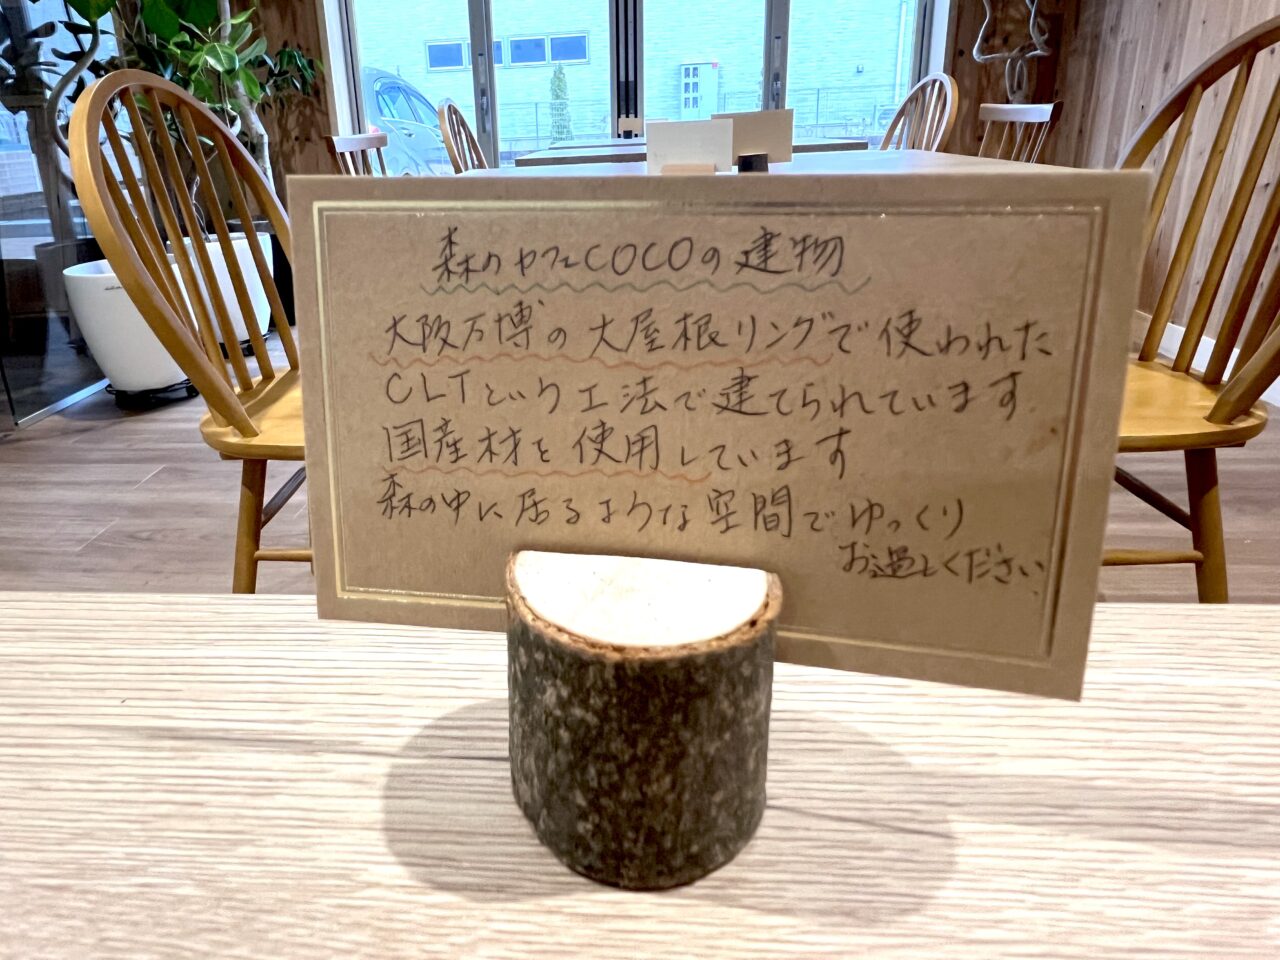 森のカフェCOCOの建物
大阪万博の大屋根リングで使われた
CLTという工法で建てられています
国産材を使用しています
森の中に居るような空間でゆっくり
お過しください